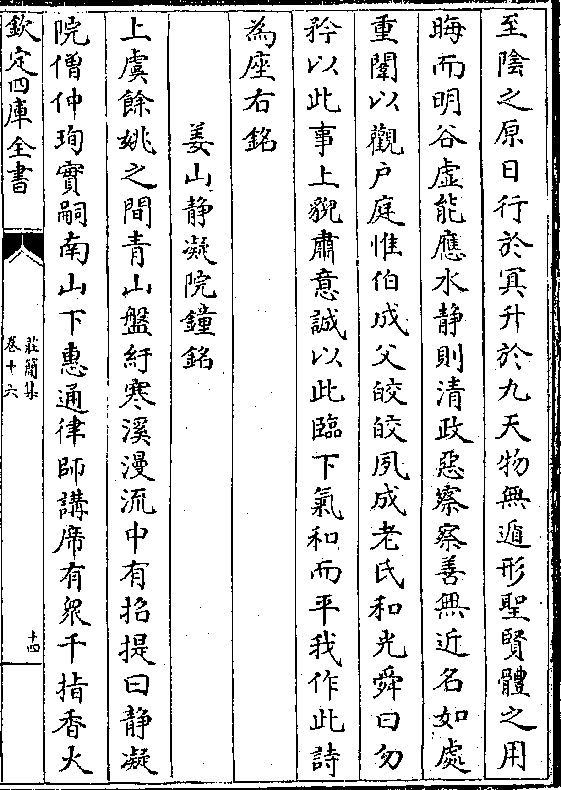 至陰之原日行於冥升於九天物無遁形聖賢體之用
晦而明谷虛能應水静則清政惡察察善無近名如處
重闈以觀户庭惟伯成父皎皎夙成老氏和光舜曰勿
矜以此事上貌肅意誠以此臨下氣和而平我作此詩
為座右銘
姜山静凝院鐘銘
上虞餘姚之間青山盤紆寒溪漫流中有招提曰静凝
院僧仲珣實嗣南山下惠通律師講席有衆千指香火
欽定四庫全書
莊簡集
卷十六
十四